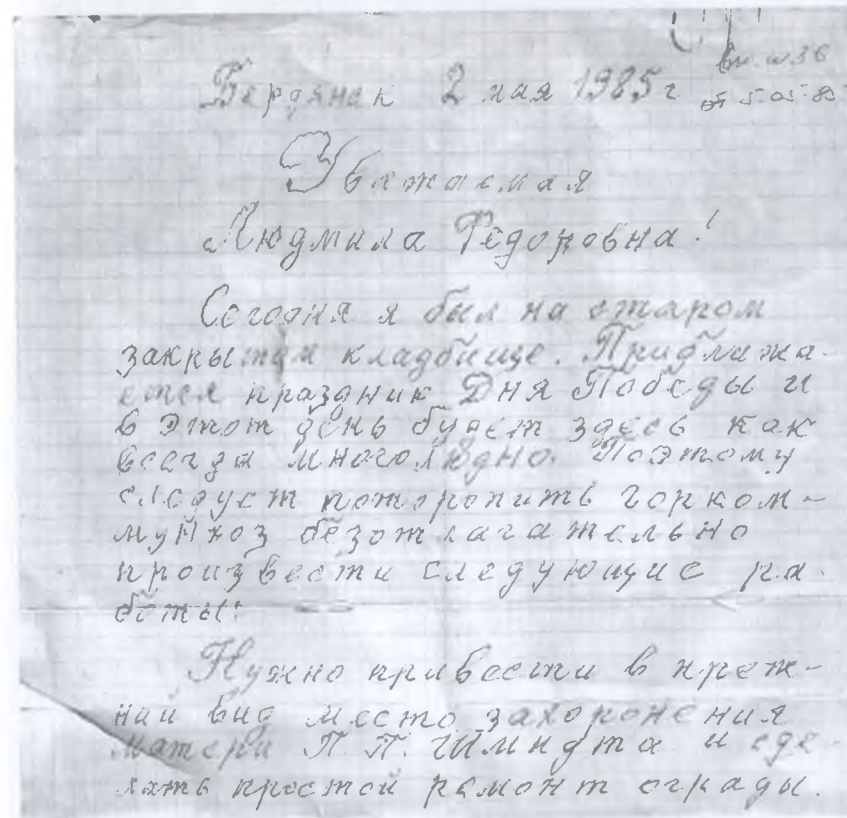 вх. н 36
Бердянск 2 мая 1985 г
от 5-05-85
Уважаемая
Людмила Федоровна!
Сегодня я был на старом
закрытом кладбище. Приближа-
ется праздник Дня Победы и
в этот день будет здесь как
всегда многолюдно. Поэтому
следует поторопить горком-
мунхоз безотлагательно
произвести следующие ра-
боты:
Нужно привести в преж-
ний вид место захоронения
матери П. П. Шмидта и сде-
лать простой ремонт ограды.